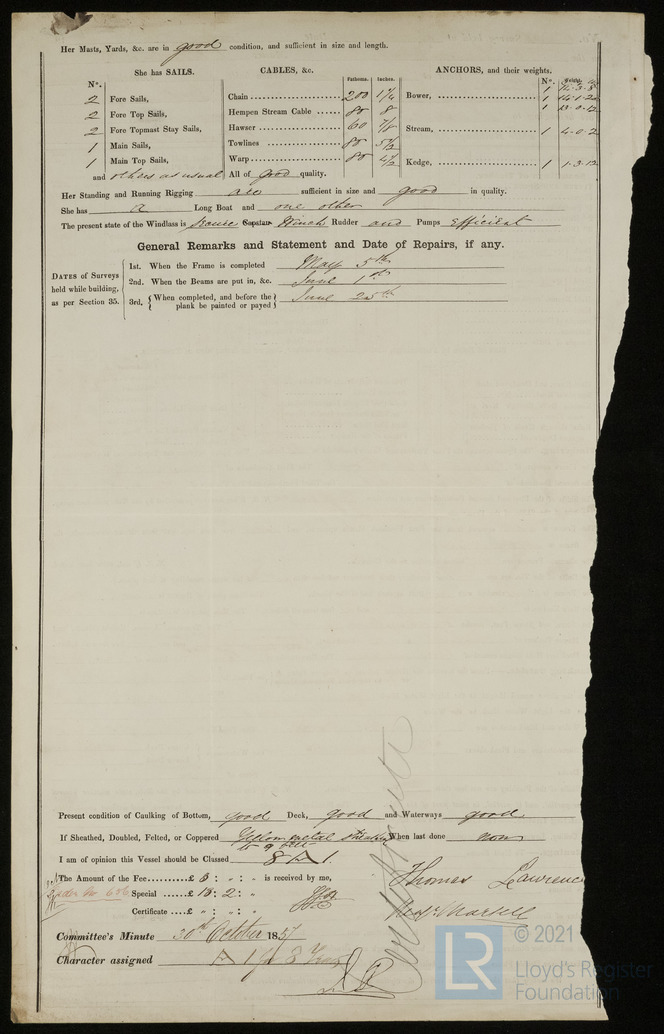 Her Masts, Yards, &c. are in good condition, and sufficient in size and length.
She has SAILS.
CABLES, &c.
ANCHORS, and their weights.
Nº.
Fathoms. Inches.
Nº.
2 Fore Sails,
2 Fore Top Sails,
2 Fore Topmast Stay Sails,
1 Main Sails,
1 Main Top Sails,
and others as usual
Chain 200 1¼
Hempen Stream Cable 80 8
Hawser 60 7/8
Towlines 80 5½
Warp 80 4½
All of good quality.
Bower, 1
1 14.1.20
1 13.0.12
Stream, 1 4.0.2
Kedge, 1 1.3.12
Her Standing and Running Rigging all sufficient in size and good in quality.
She has a Long Boat and one other
The present state of the Windlass is Capstan Winch Rudder and Pumps Efficient
General Remarks and Statement and Date of Repairs, if any.
DATES of Surveys held while building, as per Section 35.
1st. When the Frame is completed May 5th
2nd. When the Beams are put in, &c. June 1st
3rd. { When completed, and before the plank be painted or payed } June 25th
Present condition of Caulking of Bottom, good Deck, good and Waterways good
If Sheathed, Doubled, Felted, or Coppered Yellow metal When last done now
to 9 feet
I am of opinion this Vessel should be Classed 8 A 1.
The Amount of the Fee £ 5 : " : " is received by me,
Special £ 13 : 2 : "
Certificate £ " : " : "
Thomas Lawrence
Committee's Minute 30th October 1857
Character assigned A 1 for 8 Years
LR
© 2021
Lloyd's Register
Foundation